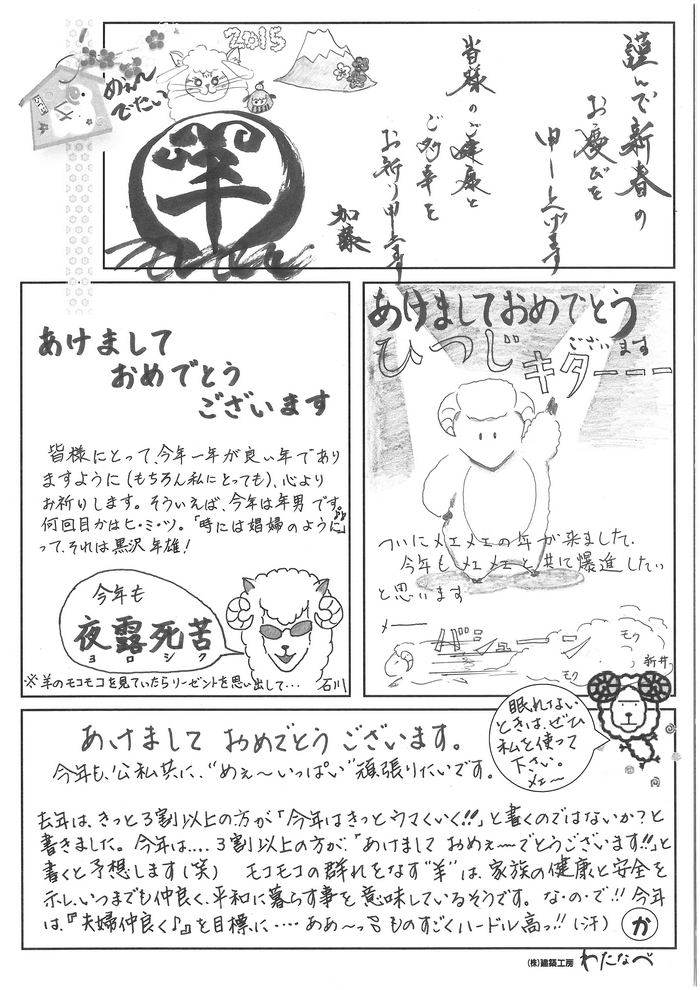 謹んで新春の
お慶びを
申し上げます
皆様のご健康と
ご多幸を
お祈り申上ます
加藤
2015
めぇぇん
でたい
羊
あけまして
おめでとう
ございます
皆様にとって、今年一年が良い年であり
ますように(もちろん私にとっても)、心より
お祈りします。そういえば、今年は年男です。
何回目かはヒ・ミ・ツ。「時には娼婦のように♪」
って、それは黒沢年雄!
今年も
夜露死苦
ヨロシク
※羊のモコモコを見ていたらリーゼントを思い出して…
石川
あけましておめでとう
ございます
ひつじ
キターーー
ついにメェメェの年が来ました、
今年もメェメェと共に爆進したい
と思います
メー
モク
モク
新井
眠れない
ときは、ぜひ
私を使って
下さい。
メェ〜
あけまして おめでとう ございます。
今年も、公私共に、"めぇ〜いっぱい"頑張りたいです。
去年は、きっと3割以上の方が「今年はきっとウマくいく!!」と書くのではないか?と
書きました。今年は....3割以上の方が、「あけまして おめぇ〜でとうございます!!」と
書くと予想します(笑) モコモコの群れをなす"羊"は、家族の健康と安全を
示し、いつまでも仲良く、平和に暮らす事を意味しているそうです。な・の・で!!今年
は、『夫婦仲良く♪』を目標に‥‥ああ〜っらものすごくハードル高っ!!(汗)
か
(株)建築工房 わたなべ